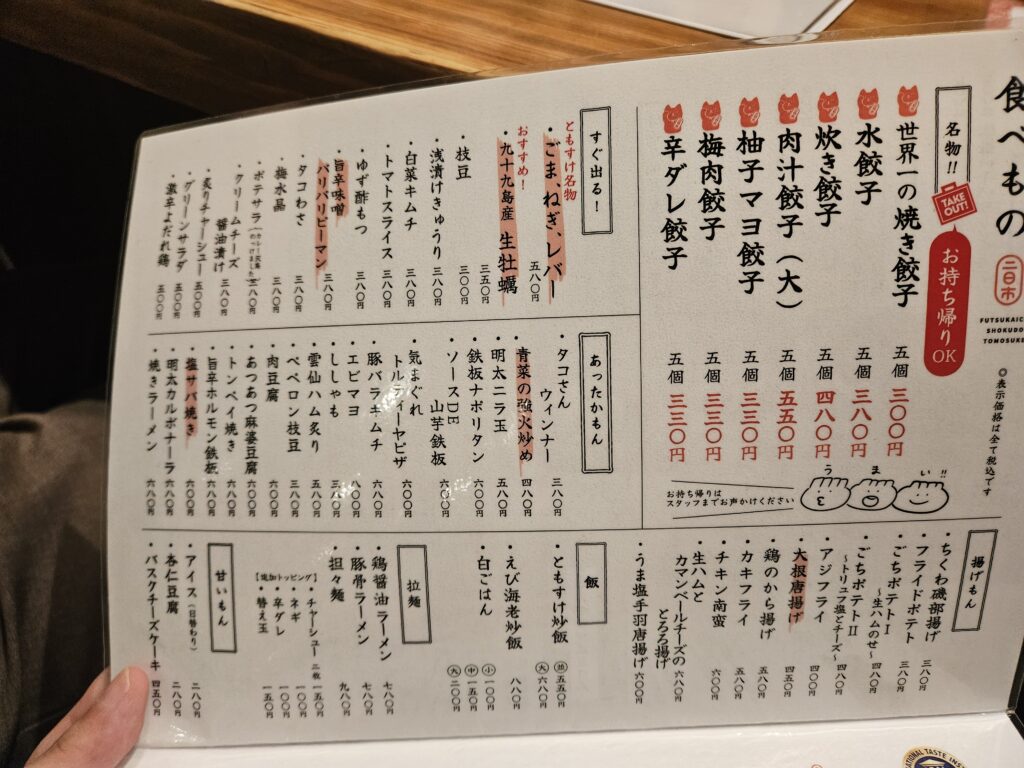 食べもの
二日市
FUTSUKAICHI
SHOKUDO
TOMOSUKE
◎表示価格は全て税込です
名物!!
TAKE OUT!
お持ち帰りOK
世界一の焼き餃子 五個 三〇〇円
水餃子 五個 三八〇円
炊き餃子 五個 四八〇円
肉汁餃子(大) 五個 五五〇円
柚子マヨ餃子 五個 三三〇円
梅肉餃子 五個 三三〇円
辛ダレ餃子 五個 三三〇円
うまい!!
お持ち帰りは
スタッフまでお声かけください
すぐ出る!
ともすけ名物
・ごま、ねぎ、レバー 五八〇円
おすすめ!
・九十九島産 生牡蠣 三五〇円
・枝豆 三〇〇円
・浅漬けきゅうり 三八〇円
・白菜キムチ 三八〇円
・トマトスライス 三八〇円
・ゆず酢もつ 三八〇円
・旨辛味噌
バリバリピーマン 三八〇円
・タコわさ 三八〇円
・梅水晶 三八〇円
・ポテサラ 三八〇円
・クリームチーズ
醤油漬け 三八〇円
・炙りチャーシュー 五〇〇円
・グリーンサラダ 五〇〇円
・激辛よだれ鶏 五〇〇円
あったかもん
・タコさん
ウィンナー 三八〇円
・青菜の強火炒め 四八〇円
・明太ニラ玉 五八〇円
・鉄板ナポリタン 六〇〇円
・ソースDE
山芋鉄板 六〇〇円
・気まぐれ
トルティーヤピザ 六〇〇円
・豚バラキムチ 六八〇円
・エビマヨ 六〇〇円
・ししゃも 三八〇円
・雲仙ハム炙り 五八〇円
・ペペロン枝豆 三八〇円
・肉豆腐 六〇〇円
・あつあつ麻婆豆腐 六〇〇円
・トンペイ焼き 六〇〇円
・旨辛ホルモン鉄板 六八〇円
・塩サバ焼き 六〇〇円
・明太カルボナーラ 六八〇円
・焼きラーメン 六八〇円
揚げもん
・ちくわ磯部揚げ 三八〇円
・フライドポテト 三八〇円
・ごちポテトI
〜生ハムのせ〜 四八〇円
・ごちポテトII
〜トリュフ塩とチーズ〜 四八〇円
・アジフライ 四五〇円
・大根唐揚げ 五〇〇円
・鶏のから揚げ 五八〇円
・カキフライ 五八〇円
・チキン南蛮 六〇〇円
・生ハムと
カマンベールチーズの
とろろ揚げ 六八〇円
・うま塩手羽唐揚げ 六〇〇円
飯
・ともすけ炒飯 並 五五〇円
大 六八〇円
・えび海老炒飯 八八〇円
・白ごはん 小 一〇〇円
中 一五〇円
大 二〇〇円
拉麺
・鶏醤油ラーメン 七八〇円
・豚骨ラーメン 七八〇円
・担々麺 九八〇円
【追加トッピング】
・チャーシュー 二枚 一五〇円
・ネギ 一〇〇円
・辛ダレ 一〇〇円
・替え玉 一五〇円
甘いもん
・アイス(日替わり) 二八〇円
・杏仁豆腐 二八〇円
・バスクチーズケーキ 四五〇円